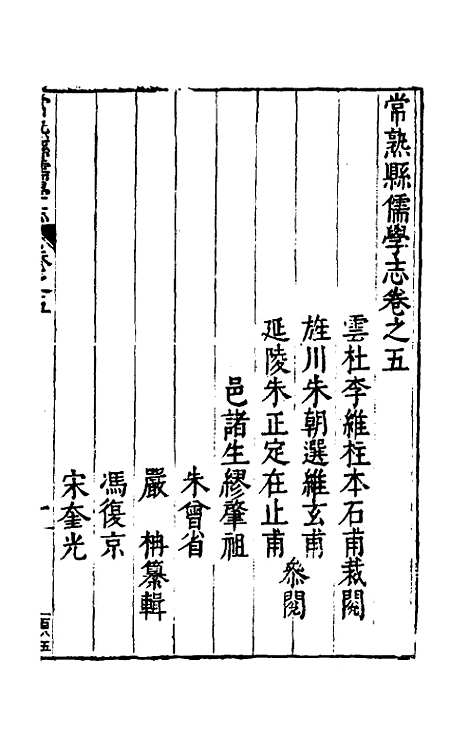 常熟縣儒學志卷之五
雲杜李維柱本石甫裁閱
旌川朱朝選維玄甫
延陵朱正定在止甫
參閱
邑諸生繆肇祖
朱曾省
嚴 柟纂輯
馮復京
宋奎光
常熟縣儒學志 卷之五